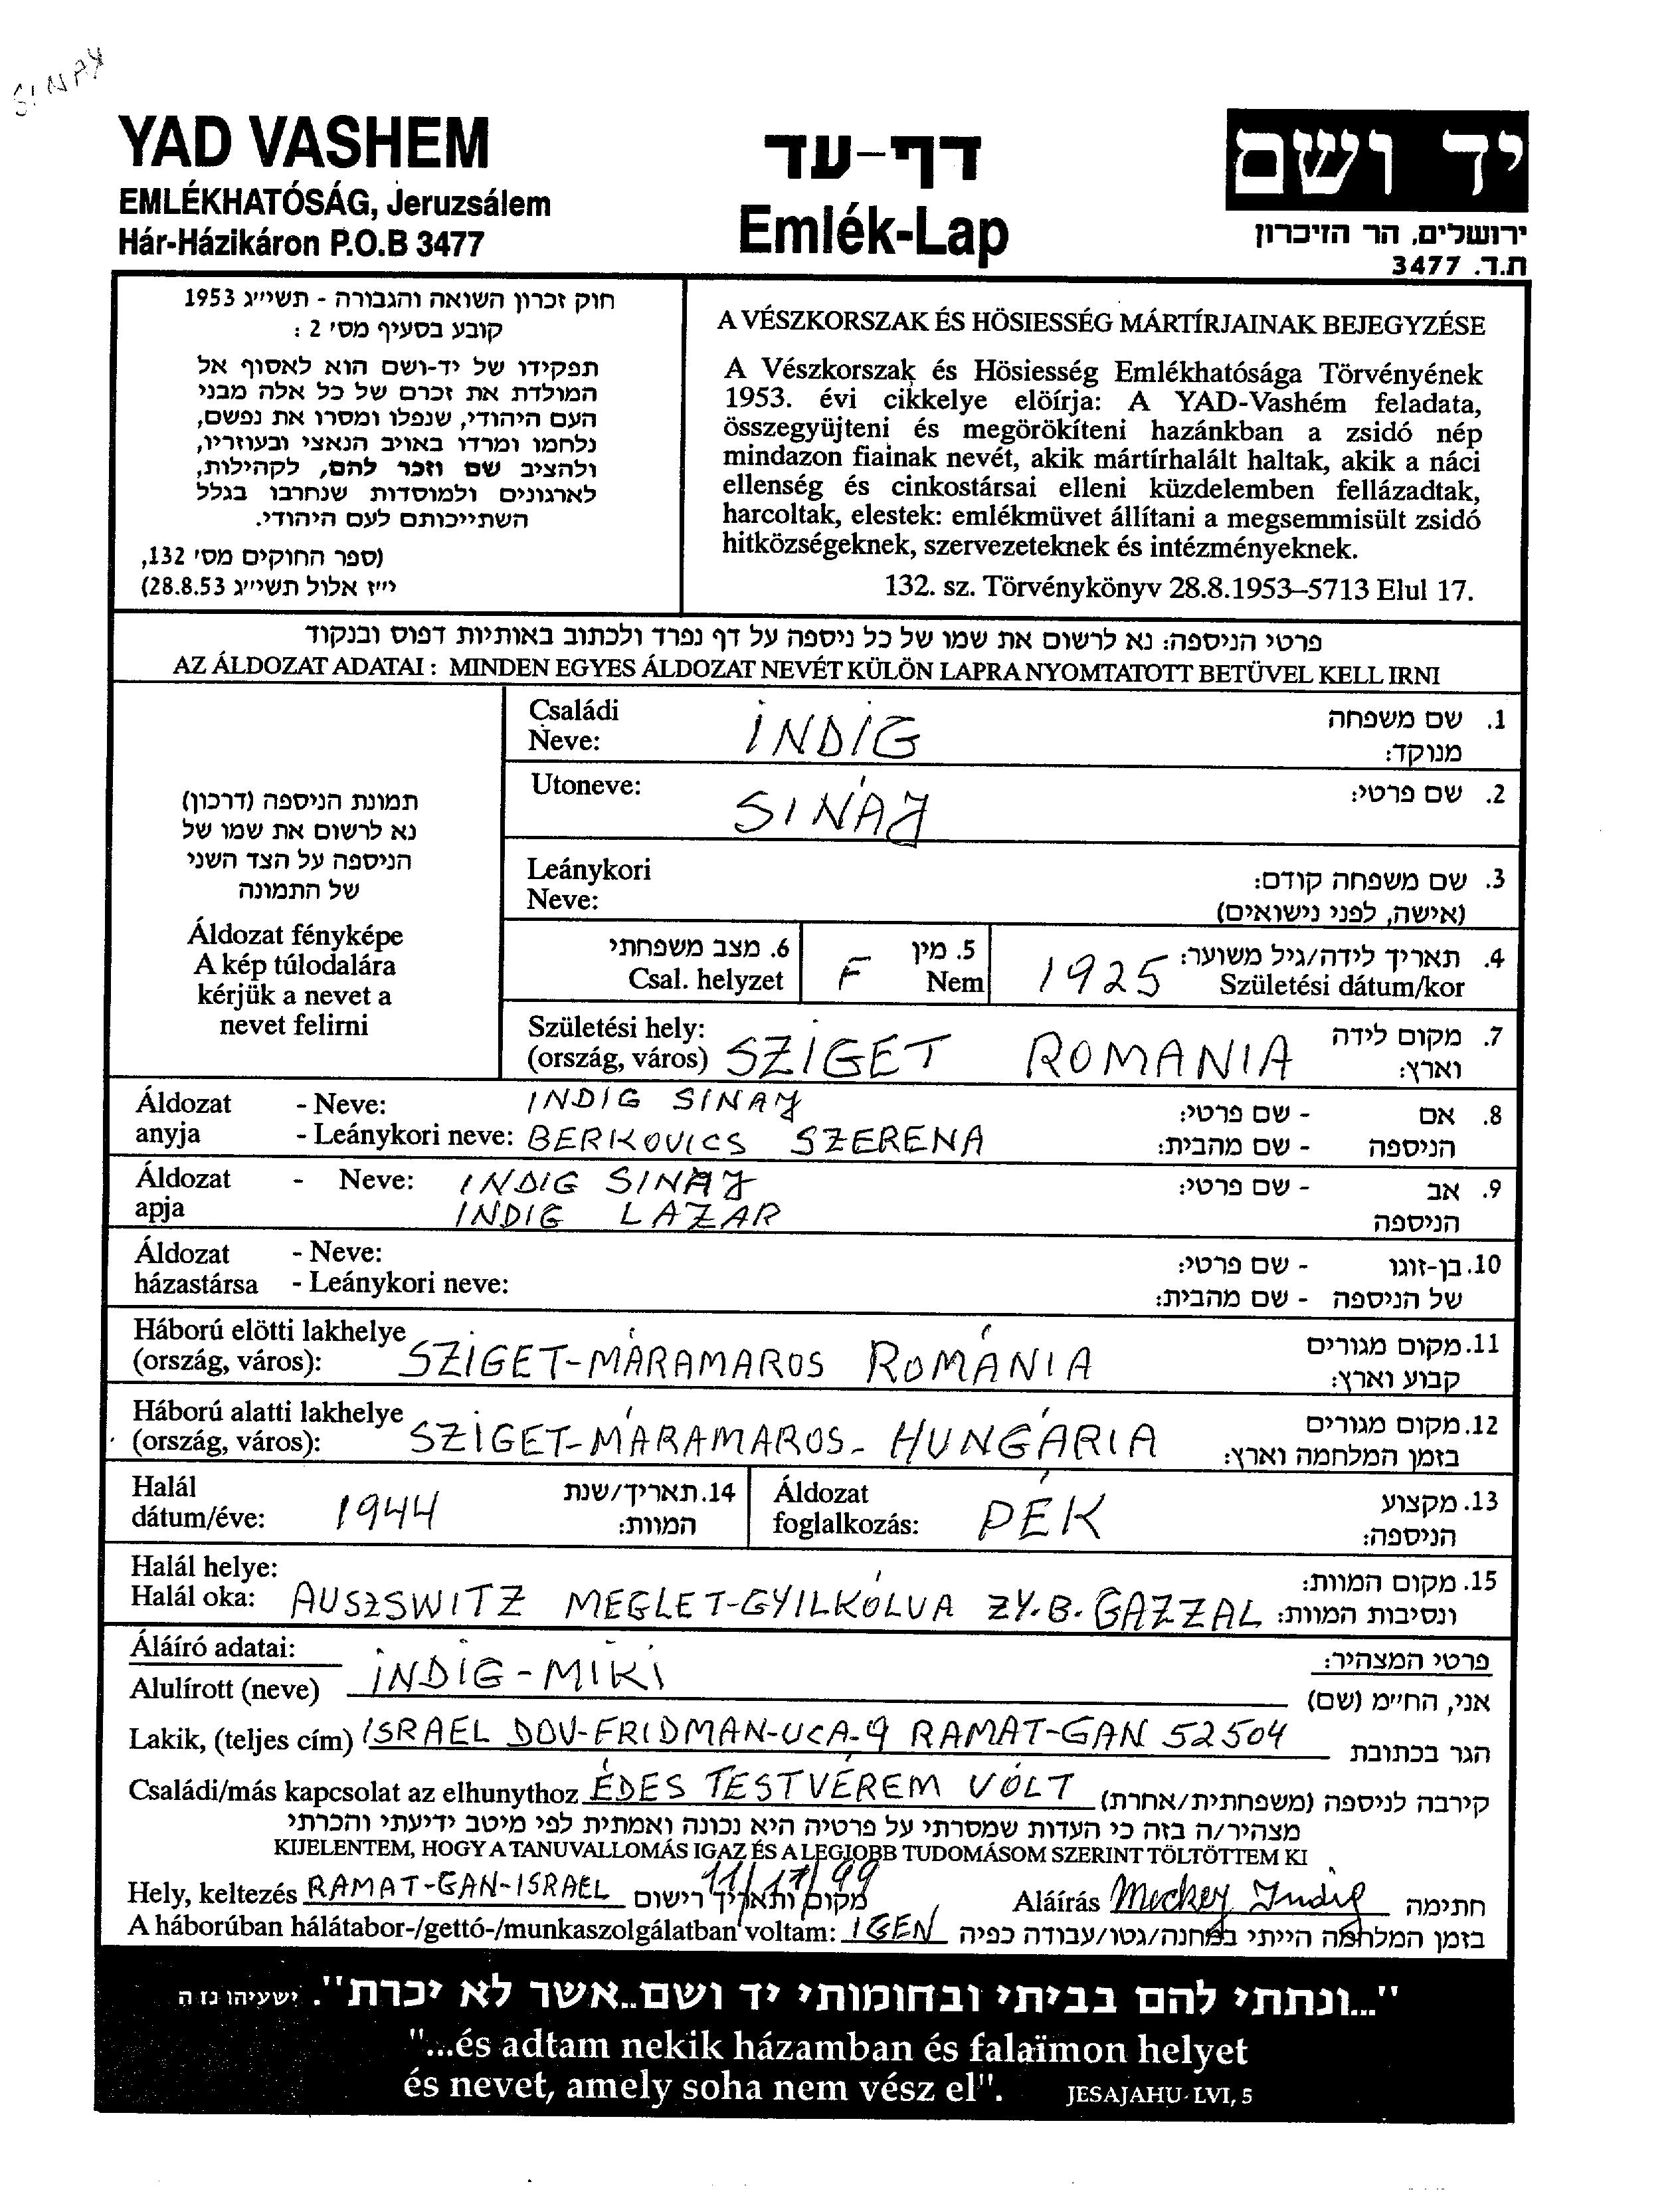 SINAY
YAD VASHEM
EMLÉKHATÓSÁG, Jeruzsálem
Hár-Házikáron P.O.B 3477
דף-עד
Emlék-Lap
יד ושם
ירושלים, הר הזיכרון
ת.ד. 3477
חוק זכרון השואה והגבורה - תשי״ג 1953
קובע בסעיף מס׳ 2 :
תפקידו של יד-ושם הוא לאסוף אל
המולדת את זכרם של כל אלה מבני
העם היהודי, שנפלו ומסרו את נפשם,
נלחמו ומרדו באויב הנאצי ובעוזריו,
ולהציב שם וזכר להם, לקהילות,
לארגונים ולמוסדות שנחרבו בגלל
השתייכותם לעם היהודי.
(ספר החוקים מס׳ 132,
י״ז אלול תשי״ג 28.8.53)
A VÉSZKORSZAK ÉS HÖSIESSÉG MÁRTÍRJAINAK BEJEGYZÉSE
A Vészkorszak és Hösiesség Emlékhatósága Törvényének
1953. évi cikkelye elöírja: A YAD-Vashém feladata,
összegyüjteni és megörökíteni hazánkban a zsidó nép
mindazon fiainak nevét, akik mártírhalált haltak, akik a náci
ellenség és cinkostársai elleni küzdelemben fellázadtak,
harcoltak, elestek: emlékmüvet állítani a megsemmisült zsidó
hitközségeknek, szervezeteknek és intézményeknek.
132. sz. Törvénykönyv 28.8.1953–5713 Elul 17.
פרטי הניספה: נא לרשום את שמו של כל ניספה על דף נפרד ולכתוב באותיות דפוס ובנקוד
AZ ÁLDOZAT ADATAI : MINDEN EGYES ÁLDOZAT NEVÉT KÜLÖN LAPRA NYOMTATOTT BETÜVEL KELL IRNI
תמונת הניספה (דרכון)
נא לרשום את שמו של
הניספה על הצד השני
של התמונה
Áldozat fényképe
A kép túlodalára
kérjük a nevet a
nevet felirni
Családi
Neve: INDIG 1. שם משפחה
מנוקד:
Utoneve: SINÁJ 2. שם פרטי:
Leánykori
Neve: 3. שם משפחה קודם:
(אישה, לפני נישואים)
6. מצב משפחתי F 5. מין 1925 4. תאריך לידה/גיל משוער:
Csal. helyzet Nem Születési dátum/kor
Születési hely: 7. מקום לידה
(ország, város) SZIGET ROMANIA וארץ:
Áldozat - Neve: INDIG SINAJ 8. אם - שם פרטי:
anyja - Leánykori neve: BERKOVICS SZERENA הניספה - שם מהבית:
Áldozat - Neve: INDIG SINAJ 9. אב - שם פרטי:
apja INDIG LAZAR הניספה
Áldozat - Neve: 10. בן-זוגו - שם פרטי:
házastársa - Leánykori neve: של הניספה - שם מהבית:
Háború elötti lakhelye 11. מקום מגורים
(ország, város): SZIGET-MÁRAMAROS ROMÁNIA קבוע וארץ:
Háború alatti lakhelye 12. מקום מגורים
(ország, város): SZIGET-MÁRAMAROS- HUNGÁRIA בזמן המלחמה וארץ:
Halál 14. תאריך/שנת Áldozat 13. מקצוע
dátum/éve: 1944 המוות: foglalkozás: PÉK הניספה:
Halál helye: 15. מקום המוות:
Halál oka: AUSZSWITZ MEGLET-GYILKÓLVA ZY.B.GAZZAL ונסיבות המוות:
Áláíró adatai: פרטי המצהיר:
Alulírott (neve) INDIG-MIKI אני, החי״מ (שם)
Lakik, (teljes cím) ISRAEL DOV-FRIDMAN-UCA-9 RAMAT-GAN 52504 הגר בכתובת
Családi/más kapcsolat az elhunythoz ÉDES TESTVÉREM VÓLT קירבה לניספה (משפחתית/אחרת)
מצהיר/ה בזה כי העדות שמסרתי על פרטיה היא נכונה ואמתית לפי מיטב ידיעתי והכרתי
KIJELENTEM, HOGY A TANUVALLOMÁS IGAZ ÉS A LEGJOBB TUDOMÁSOM SZERINT TÖLTÖTTEM KI
Hely, keltezés RAMAT-GAN-ISRAEL 11/17/99 מקום ותאריך רישום Aláírás Mickey Indig חתימה
A háborúban hálátabor-/gettó-/munkaszolgálatban voltam: IGEN בזמן המלחמה הייתי במחנה/גטו/עבודה כפיה
"...ונתתי להם בביתי ובחומותי יד ושם..אשר לא יכרת". ישעיהו נז ה
"...és adtam nekik házamban és falaïmon helyet
és nevet, amely soha nem vész el". JESAJAHU- LVI, 5